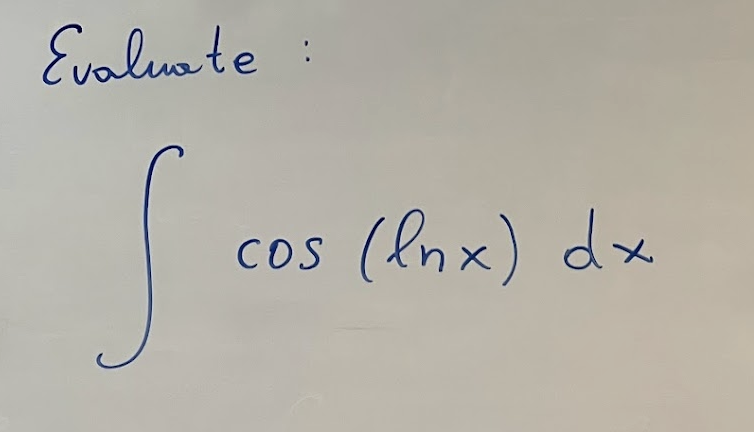 Evaluate :
∫ cos (ln x) dx